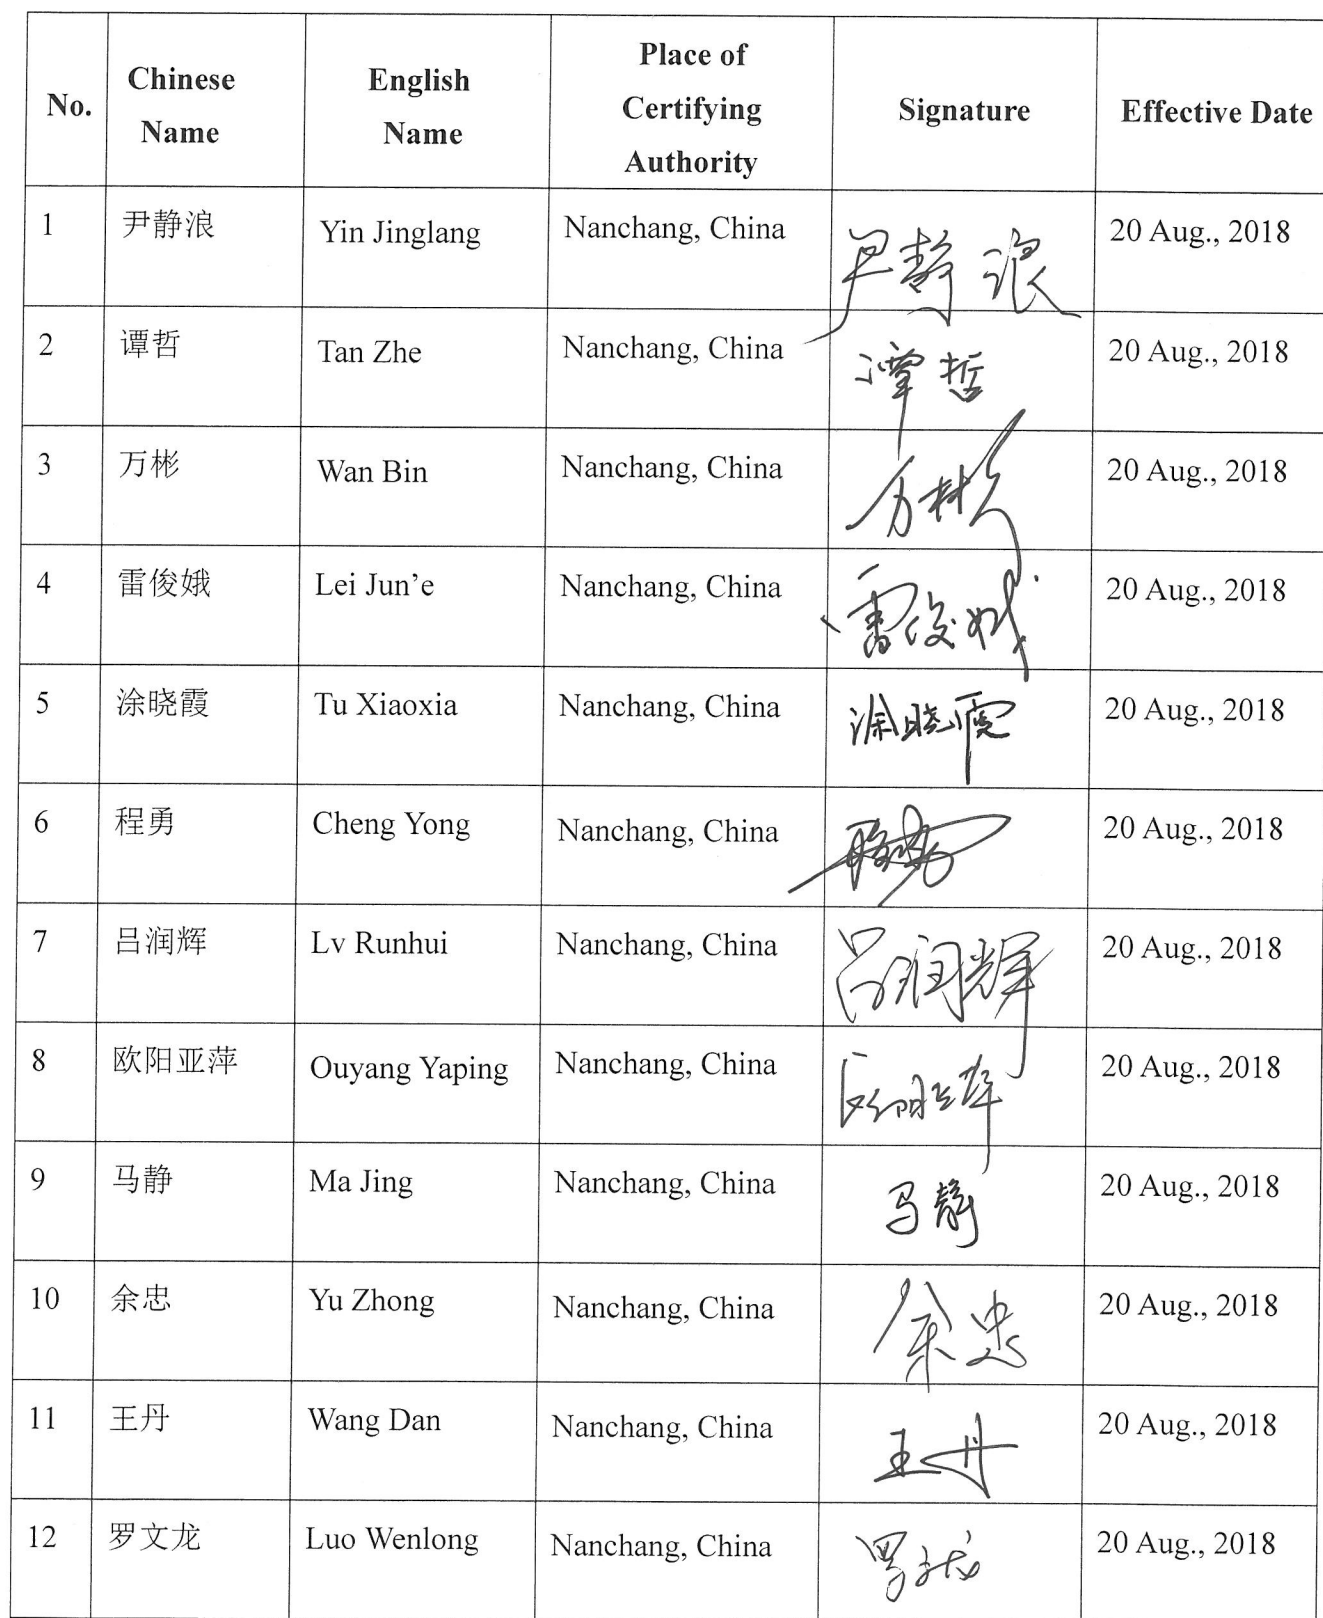 No.
Chinese
Name
English
Name
Place of
Certifying
Authority
Signature
Effective Date
1 尹静浪 Yin Jinglang Nanchang, China 尹静浪 20 Aug., 2018
2 谭哲 Tan Zhe Nanchang, China 谭哲 20 Aug., 2018
3 万彬 Wan Bin Nanchang, China 万彬 20 Aug., 2018
4 雷俊娥 Lei Jun’e Nanchang, China 雷俊娥 20 Aug., 2018
5 涂晓霞 Tu Xiaoxia Nanchang, China 涂晓霞 20 Aug., 2018
6 程勇 Cheng Yong Nanchang, China 20 Aug., 2018
7 吕润辉 Lv Runhui Nanchang, China 吕润辉 20 Aug., 2018
8 欧阳亚萍 Ouyang Yaping Nanchang, China 欧阳亚萍 20 Aug., 2018
9 马静 Ma Jing Nanchang, China 马静 20 Aug., 2018
10 余忠 Yu Zhong Nanchang, China 余忠 20 Aug., 2018
11 王丹 Wang Dan Nanchang, China 王丹 20 Aug., 2018
12 罗文龙 Luo Wenlong Nanchang, China 罗文龙 20 Aug., 2018